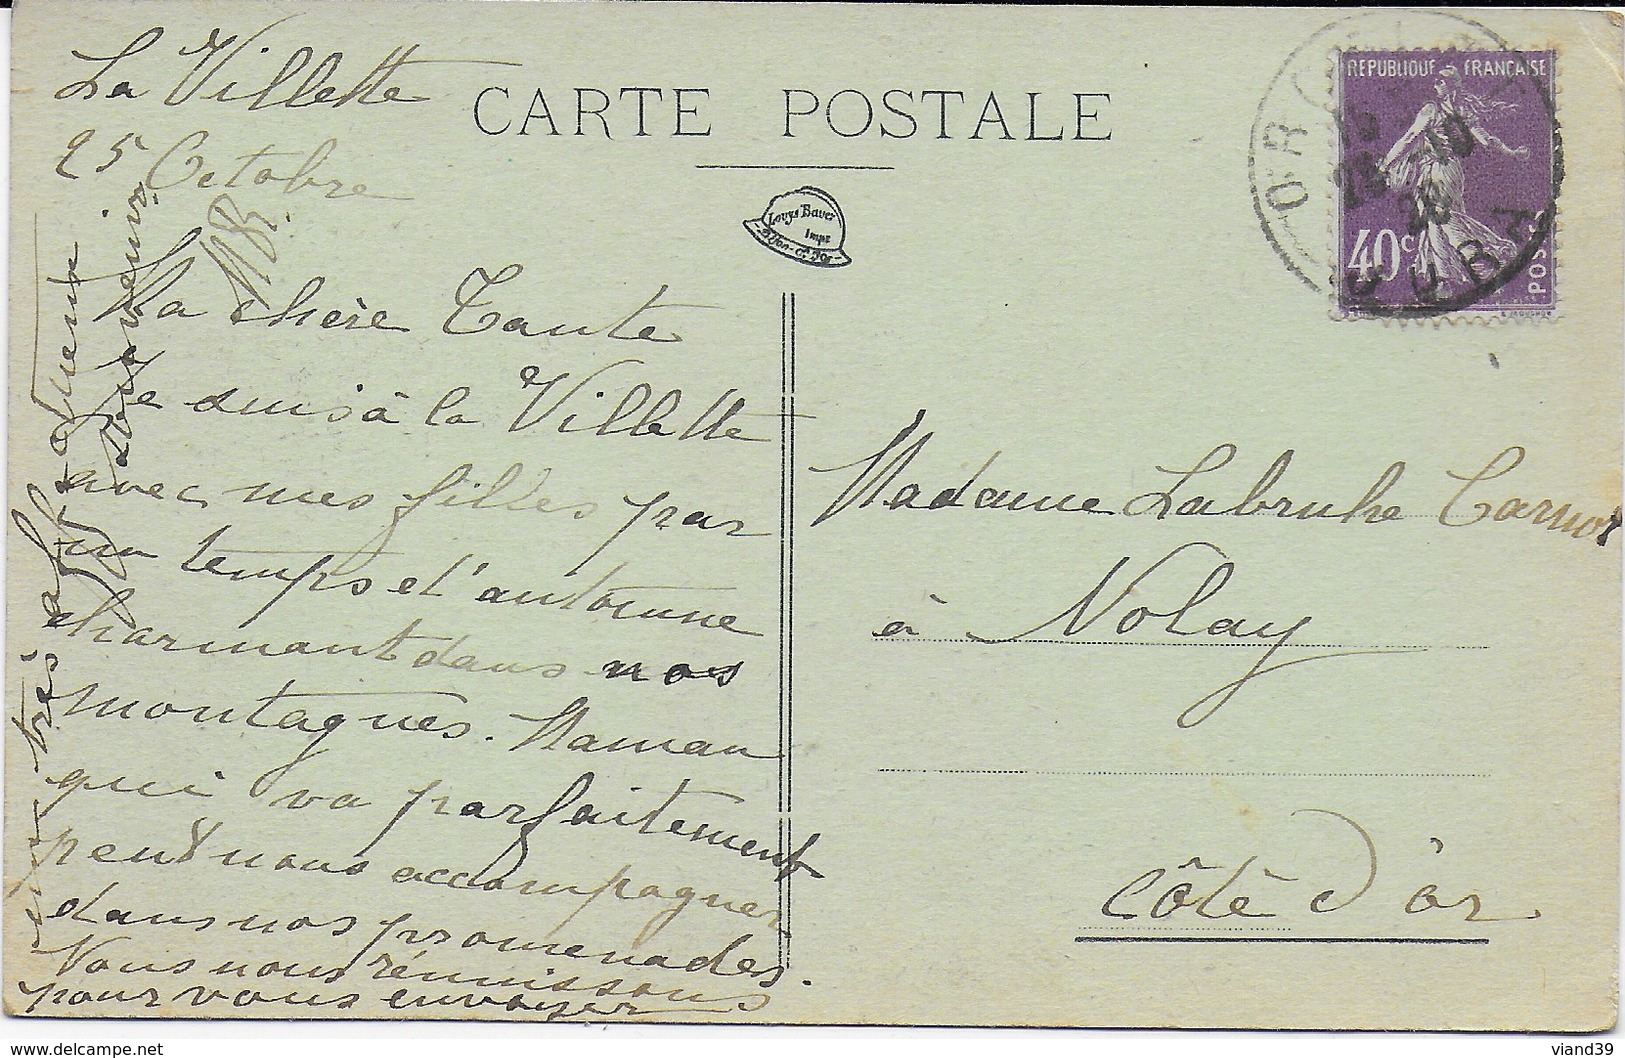 La Villette
25 Octobre
CARTE POSTALE
Louys Bauer
Impr
Dijon-Cte d'Or
REPUBLIQUE FRANÇAISE
40c
POSTES
JURA
Ma chère Tante
Je suis à la Villette
avec mes filles par
un temps d'automne
charmant dans nos
montagnes. Maman
qui va parfaitement
peut nous accompagner
dans nos promenades.
Nous nous réunissons
pour vous envoyer
nos très affectueux
souvenirs.
Madame Labruhe Carnot
à Nolay
Côte d'Or
https://www.delcampe.net
viand39